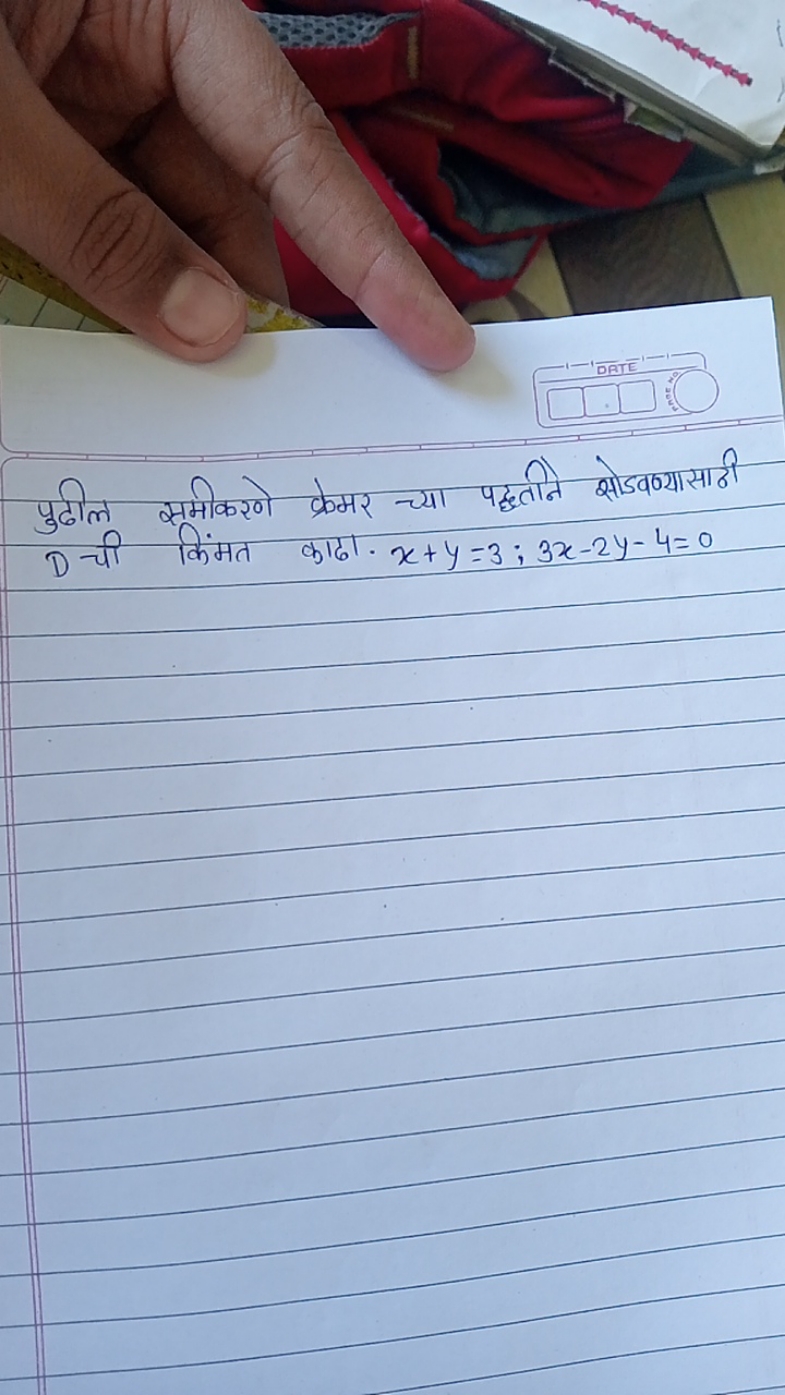 DATE
PAGE NO.
पुढील समीकरणे क्रेमर च्या पद्धतीने सोडवण्यासाठी
D ची किंमत काढा. x+y=3; 3x-2y-4=0